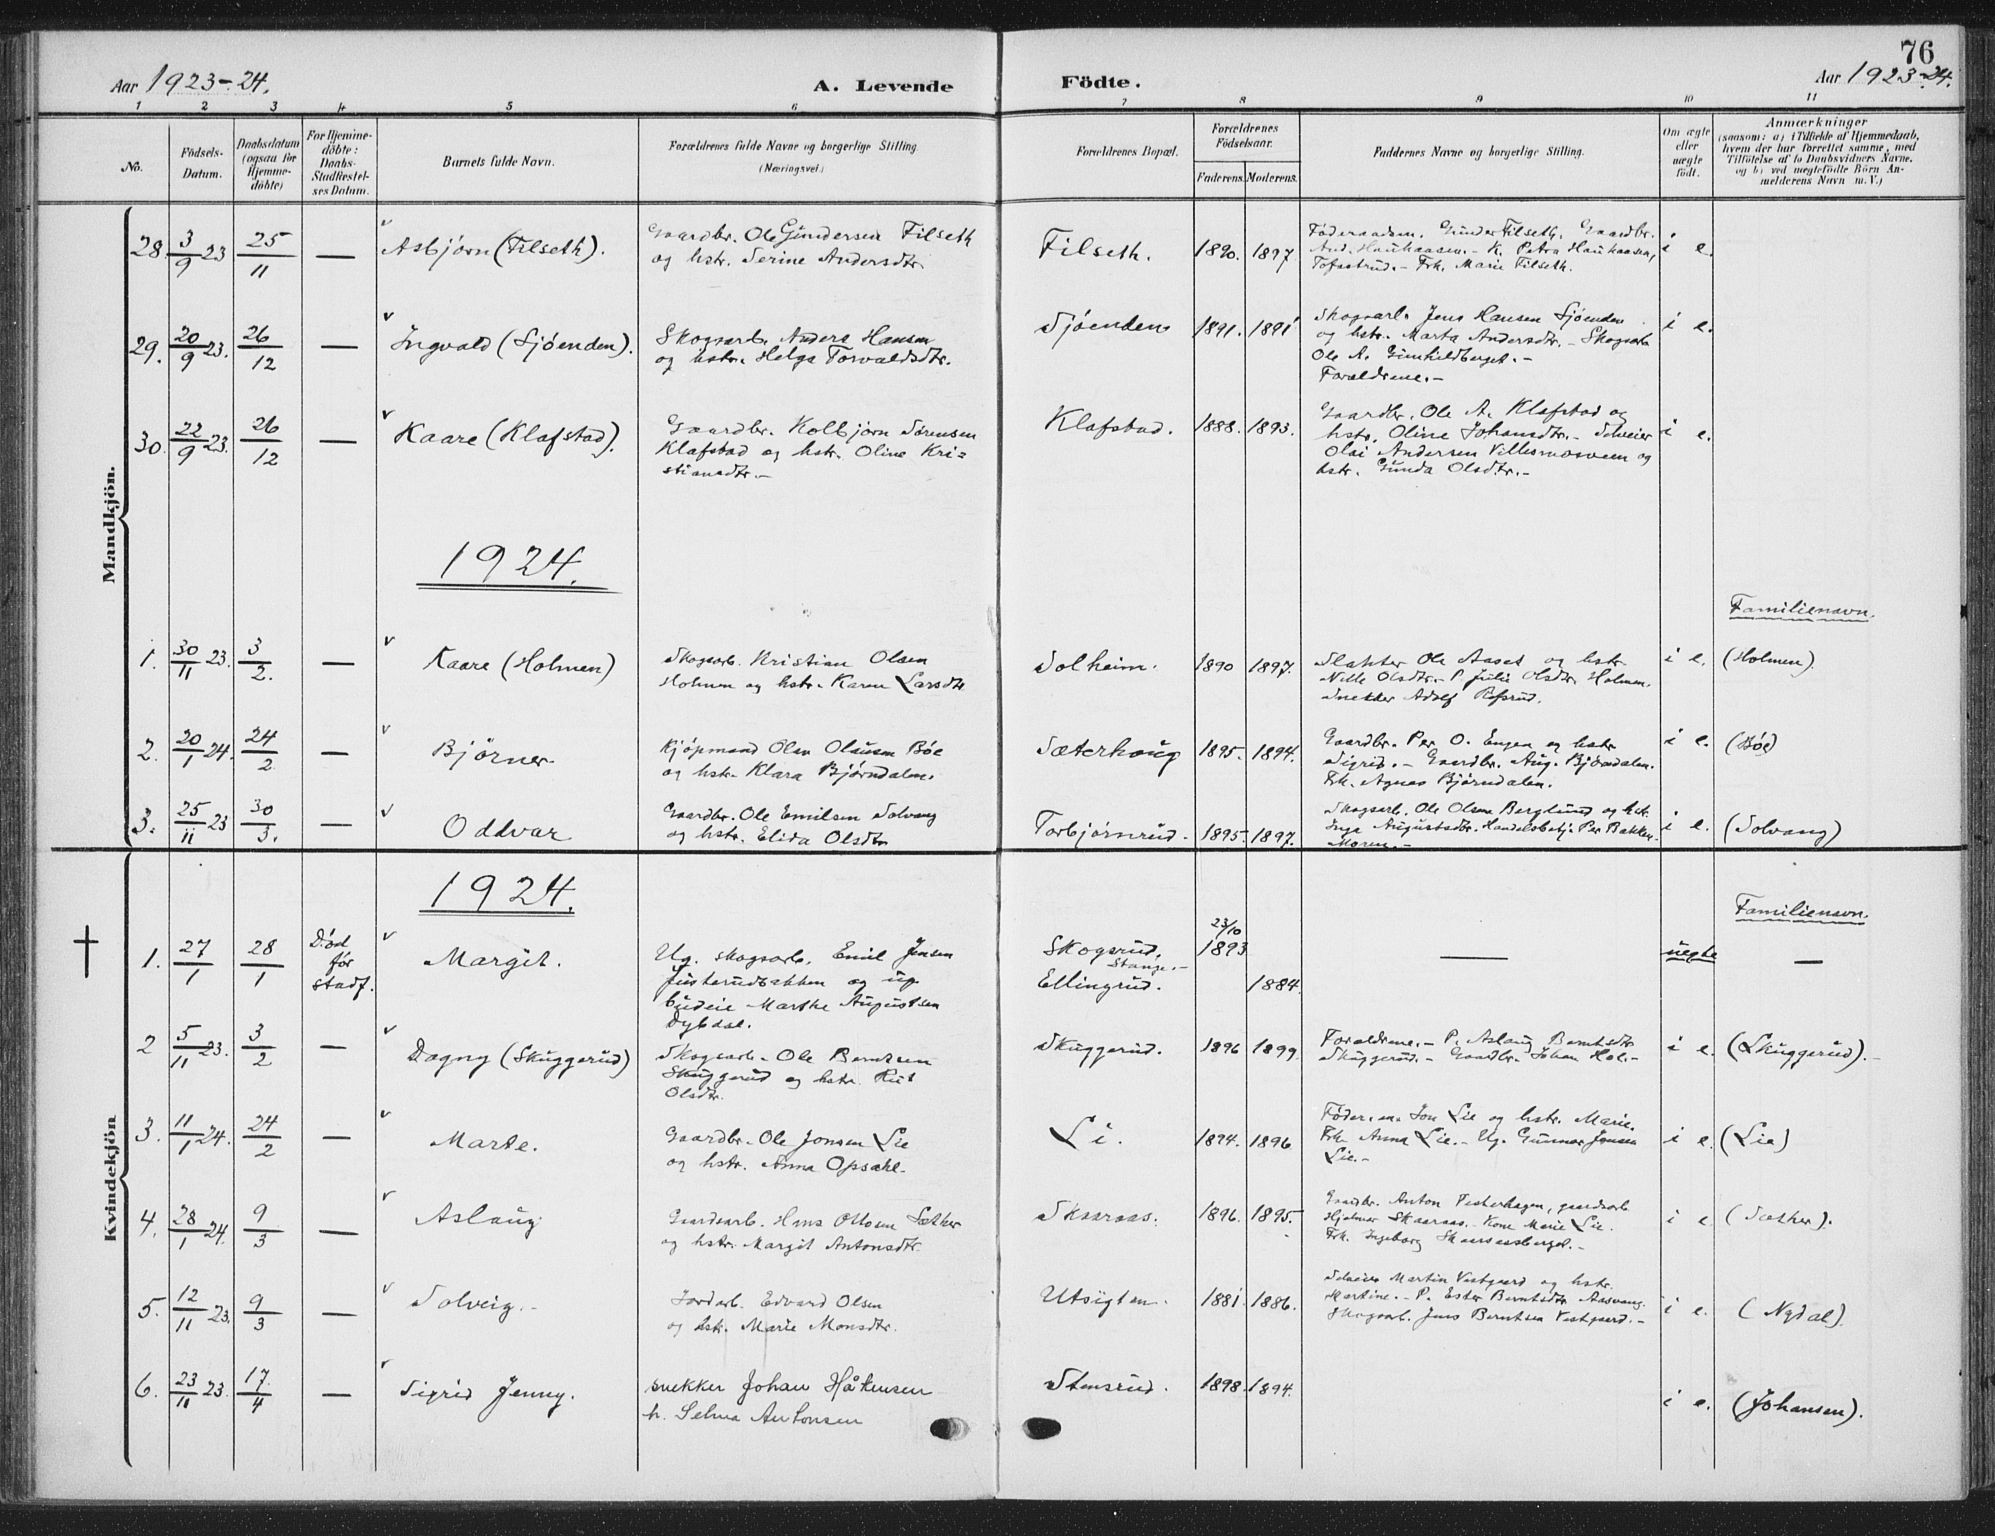 Aar 1923-24.
A. Levende
Födte.
76
Aar 1923-24.
1 2 3 4 5 6 7 8 9 10 11
No.
Födsels-
Datum.
Daabsdatum
(ogsaa for
Hjemme-
döbte)
For Hjemme-
döbte:
Daabs-
Stadfæstel-
ses Datum.
Barnets fulde Navn.
Forældrenes fulde Navne og borgerlige Stilling
(Næringsvei.)
Forældrenes Bopæl.
Forældrenes
Födselsaar.
Faderens. Moderens.
Faddernes Navne og borgerlige Stilling.
Om ægte
eller
uægte
födt.
Anmærkninger
(saasom: a) i Tilfælde af Hjemmedaab,
hvem der har forrettet samme, med
Tilföielse af to Daabsvidners Navne.
og b) ved uægtefödte Börn An-
melderens Navn m. V.)
Mandkjön.
28. 3/9 23 25/11 — Asbjørn (Filseth).
Gaardbr. Ole Gundersen Filseth
og hstr. Serine Andersdtr.
Filseth. 1890. 1897
Føderaadsm. Gunder Filseth. Gaardbr.
And. Hauhaasen.- K. Petra Hauhaasen,
Tofastrud.- Frk. Marie Filseth.
i e.
29. 20/9 23. 26/12 — Ingvald (Sjøenden).
Skogsarb. Anders Hansen
og hstr. Helga Torvaldsdtr.
Sjøenden 1891. 1891
Skogsarb. Jens Hansen Sjøenden
og hstr. Marta Andersdtr.- Skogsarb.
Ole A. Gunhildberget.-
Forældrene.-
i e.
30. 22/9 23. 26/12 — Kaare (Klafstad).
Gaardbr. Kolbjørn Sørensen
Klafstad og hstr. Oline Kri=
stiansdtr.-
Klafstad. 1888. 1893.
Gaardbr. Ole A. Klafstad og
hstr. Oline Johansdtr.- Sveier
Olai Andersen Villesmosveen og
hstr. Gunda Olsdtr.-
i e.
1924.
Familienavn.
1. 30/11 23. 3/2. — Kaare (Holmen)
Skogsarb. Kristian Olsen
Holmen og hstr. Karen Larsdtr
Solheim. 1890 1897.
Slakter Ole Aaset og hstr
Nille Olsdtr.- P. Julie Olsdtr. Holmen.
Snekker Adolf
i e. (Holmen).
2. 20/1 24. 24/2 — Bjørner.
Kjøpmand Olav Olausen Bøe
og hstr. Klara Bjørndalen.
Sæterhaug 1895. 1894.
Gaardbr. Per O. Engen og hstr
Sigrid.- Gaardbr. Aug. Bjørndalen.
Frk. Agnes Bjørndalen.
i e. (Bøe)
3. 25/11 23 30/3. — Oddvar
Gaardbr. Ole Emilsen Solvang
og hstr. Elida Olsdtr
Torbjørnrud. 1895. 1897.
Skogsarb. Ole Olsen Berglund og hstr.
Inga Augustsdtr. Handelsbetj. Per Bakken-
Moren.-
i e. (Solvang)
Kvindekjön
1924.
Familienavn.
1. 27/1 28/1
Død
før
stadf.
Margit.
Ug. skogsarb. Emil Jensen
og ug.
budeie Marthe Augustsen
Dybdal.
Skogsrud,
Stange.-
Ellingrud.
23/10
1893
1884.
— uegte —
2 5/11 23. 3/2 — Dagny (Skuggerud)
Skogsarb. Ole Berntsen
Skuggerud og hstr. Rut
Olsdtr.
Skuggerud. 1896 1899
Forældrene.- P. Aslaug Berntsdtr
Skuggerud.- Gaardbr. Johan Hol.-
i e. (Skuggerud).-
3. 11/1 24. 24/2 — Marte.
Gaardbr. Ole Jonsen Lie
og hstr. Anna Opsahl.
Li. 1894. 1896
Føder.m. Jon Lie og hstr. Marie.
Frk. Anna Lie.- Ug. Gunnar Jonsen
Lie.-
i e. (Lie)
4. 28/1 24. 9/3 — Aslaug
Gaardsarb. Hans Ottosen Sæther
og hstr. Margit Antonsdtr.
Skaaraas. 1896. 1895.
Gaardbr. Anton Vesterhagen, gaardsarb
Hjalmar Skaaraas.- Kone Marie Lie.
Frk. Ingeborg Skaaraasberget.-
i e. (Sæther).
5. 12/11 23. 9/3 — Solveig.-
Jordarb. Edvard Olsen
og hstr. Marie Monsdtr.
Utsigten. 1881. 1886.
Sveier Martin Vestgaard og hstr.
Martine.- P. Ester Berntsdtr. Aasvang.
Skogsarb. Jens Berntsen Vestgaard.-
i e. (Nydal).
6. 23/11 23. 17/4 — Sigrid Jenny.
snekker Johan Håkensen
h. Selma Antonsen
Stensrud. 1898. 1894.
i e. (Johansen).